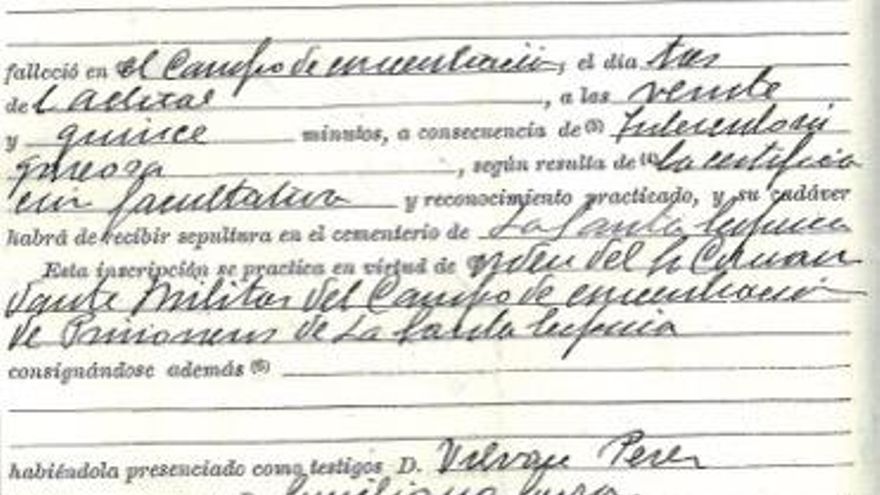 falleció en el Campo de concentración, el día tres
del actual, a las veinte
y quince minutos, a consecuencia de (3) Tuberculosis
, según resulta de (4) la certifica
cion facultativa y reconocimiento practicado, y su cadáver
habrá de recibir sepultura en el cementerio de La Santa Espina
Esta inscripción se practica en virtud de orden del Sr Coman
dante Militar del Campo de concentración
de Prisioneros de La Santa Espina
consignándose además (5)
habiéndola presenciado como testigos D. Perez